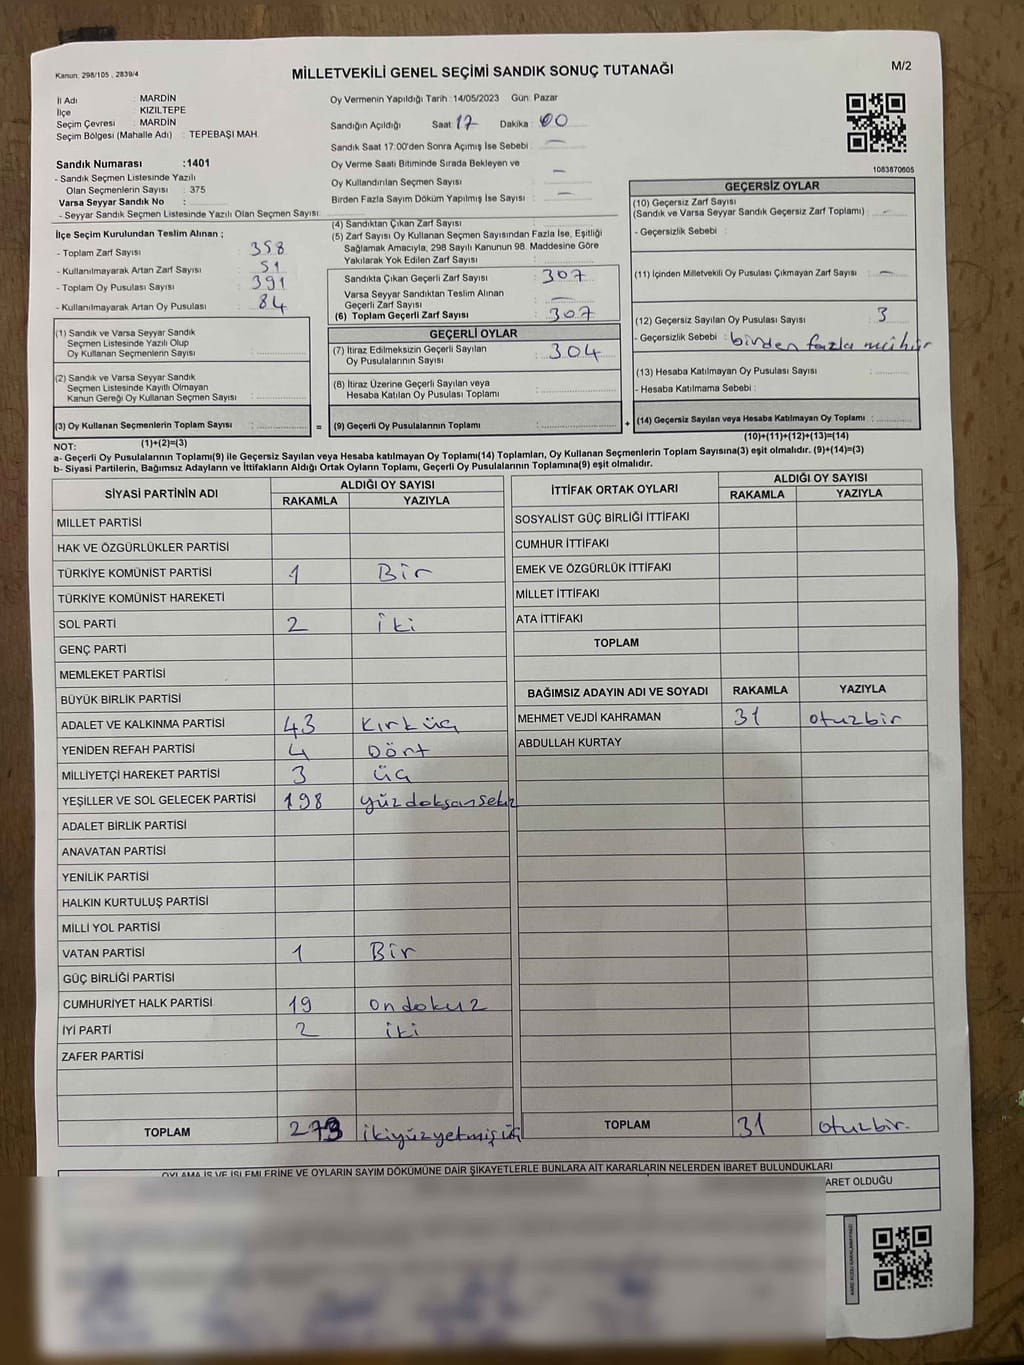 Kanun: 298/105 , 2839/4
MİLLETVEKİLİ GENEL SEÇİMİ SANDIK SONUÇ TUTANAĞI
M/2
İl Adı : MARDİN
İlçe : KIZILTEPE
Seçim Çevresi : MARDİN
Seçim Bölgesi (Mahalle Adı) : TEPEBAŞI MAH.
Sandık Numarası :1401
- Sandık Seçmen Listesinde Yazılı
Olan Seçmenlerin Sayısı : 375
Varsa Seyyar Sandık No :
- Seyyar Sandık Seçmen Listesinde Yazılı Olan Seçmen Sayısı :
Oy Vermenin Yapıldığı Tarih : 14/05/2023 Gün: Pazar
Sandığın Açıldığı Saat: 17 Dakika : 00
Sandık Saat 17:00'den Sonra Açımış İse Sebebi : —
Oy Verme Saati Bitiminde Sırada Bekleyen ve
Oy Kullandırılan Seçmen Sayısı : —
Birden Fazla Sayım Döküm Yapılmış İse Sayısı : —
1083870605
İlçe Seçim Kurulundan Teslim Alınan ;
- Toplam Zarf Sayısı : 358
- Kullanılmayarak Artan Zarf Sayısı : 51
- Toplam Oy Pusulası Sayısı : 391
- Kullanılmayarak Artan Oy Pusulası : 84
(1) Sandık ve Varsa Seyyar Sandık
Seçmen Listesinde Yazılı Olup
Oy Kullanan Seçmenlerin Sayısı :
(2) Sandık ve Varsa Seyyar Sandık
Seçmen Listesinde Kayıtlı Olmayan
Kanun Gereği Oy Kullanan Seçmen Sayısı :
(3) Oy Kullanan Seçmenlerin Toplam Sayısı :
(1)+(2)=(3)
(4) Sandıktan Çıkan Zarf Sayısı :
(5) Zarf Sayısı Oy Kullanan Seçmen Sayısından Fazla İse, Eşitliği
Sağlamak Amacıyla, 298 Sayılı Kanunun 98. Maddesine Göre
Yakılarak Yok Edilen Zarf Sayısı :
Sandıkta Çıkan Geçerli Zarf Sayısı : 307
Varsa Seyyar Sandıktan Teslim Alınan
Geçerli Zarf Sayısı : —
(6) Toplam Geçerli Zarf Sayısı : 307
GEÇERLİ OYLAR
(7) İtiraz Edilmeksizin Geçerli Sayılan
Oy Pusulalarının Sayısı : 304
(8) İtiraz Üzerine Geçerli Sayılan veya
Hesaba Katılan Oy Pusulası Toplamı :
= (9) Geçerli Oy Pusulalarının Toplamı :
GEÇERSİZ OYLAR
(10) Geçersiz Zarf Sayısı
(Sandık ve Varsa Seyyar Sandık Geçersiz Zarf Toplamı) : —
- Geçersizlik Sebebi :
(11) İçinden Milletvekili Oy Pusulası Çıkmayan Zarf Sayısı : —
(12) Geçersiz Sayılan Oy Pusulası Sayısı : 3
- Geçersizlik Sebebi : birden fazla mühür
(13) Hesaba Katılmayan Oy Pusulası Sayısı :
- Hesaba Katılmama Sebebi :
+ (14) Geçersiz Sayılan veya Hesaba Katılmayan Oy Toplamı :
(10)+(11)+(12)+(13)=(14)
NOT:
a- Geçerli Oy Pusulalarının Toplamı(9) ile Geçersiz Sayılan veya Hesaba katılmayan Oy Toplamı(14) Toplamları, Oy Kullanan Seçmenlerin Toplam Sayısına(3) eşit olmalıdır. (9)+(14)=(3)
b- Siyasi Partilerin, Bağımsız Adayların ve İttifakların Aldığı Ortak Oyların Toplamı, Geçerli Oy Pusulalarının Toplamına(9) eşit olmalıdır.
SİYASİ PARTİNİN ADI ALDIĞI OY SAYISI
RAKAMLA YAZIYLA
MİLLET PARTİSİ
HAK VE ÖZGÜRLÜKLER PARTİSİ
TÜRKİYE KOMÜNİST PARTİSİ 1 Bir
TÜRKİYE KOMÜNİST HAREKETİ
SOL PARTİ 2 iki
GENÇ PARTİ
MEMLEKET PARTİSİ
BÜYÜK BİRLİK PARTİSİ
ADALET VE KALKINMA PARTİSİ 43 Kırküç
YENİDEN REFAH PARTİSİ 4 Dört
MİLLİYETÇİ HAREKET PARTİSİ 3 üç
YEŞİLLER VE SOL GELECEK PARTİSİ 198 yüzdoksansekiz
ADALET BİRLİK PARTİSİ
ANAVATAN PARTİSİ
YENİLİK PARTİSİ
HALKIN KURTULUŞ PARTİSİ
MİLLİ YOL PARTİSİ
VATAN PARTİSİ 1 Bir
GÜÇ BİRLİĞİ PARTİSİ
CUMHURİYET HALK PARTİSİ 19 ondokuz
İYİ PARTİ 2 iki
ZAFER PARTİSİ
TOPLAM 273 ikiyüzyetmişüç
İTTİFAK ORTAK OYLARI ALDIĞI OY SAYISI
RAKAMLA YAZIYLA
SOSYALİST GÜÇ BİRLİĞİ İTTİFAKI
CUMHUR İTTİFAKI
EMEK VE ÖZGÜRLÜK İTTİFAKI
MİLLET İTTİFAKI
ATA İTTİFAKI
TOPLAM
BAĞIMSIZ ADAYIN ADI VE SOYADI RAKAMLA YAZIYLA
MEHMET VEJDİ KAHRAMAN 31 otuzbir
ABDULLAH KURTAY
TOPLAM 31 otuzbir.
OYLAMA İŞ VE İŞLEMLERİNE VE OYLARIN SAYIM DÖKÜMÜNE DAİR ŞİKAYETLERLE BUNLARA AİT KARARLARIN NELERDEN İBARET BULUNDUKLARI
ARET OLDUĞU